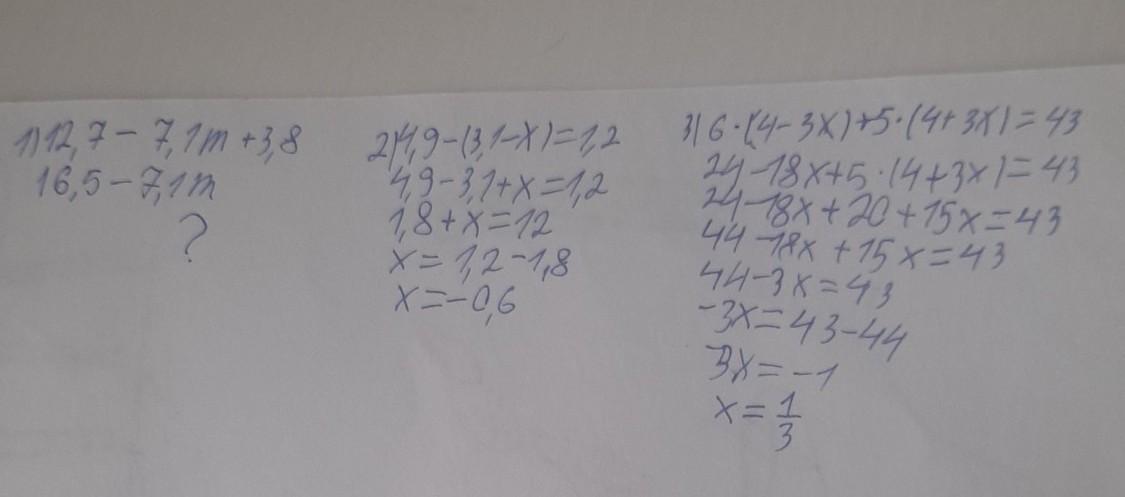 1) 12,7 - 7,1m + 3,8
16,5 - 7,1m
?
2) 4,9 - (3,1 - x) = 1,2
4,9 - 3,1 + x = 1,2
1,8 + x = 12
x = 1,2 - 1,8
x = -0,6
3) 6 · (4 - 3x) + 5 · (4 + 3x) = 43
24 - 18x + 5 · (4 + 3x) = 43
24 - 18x + 20 + 15x = 43
44 - 18x + 15x = 43
44 - 3x = 43
-3x = 43 - 44
-3x = -1
x = 1/3